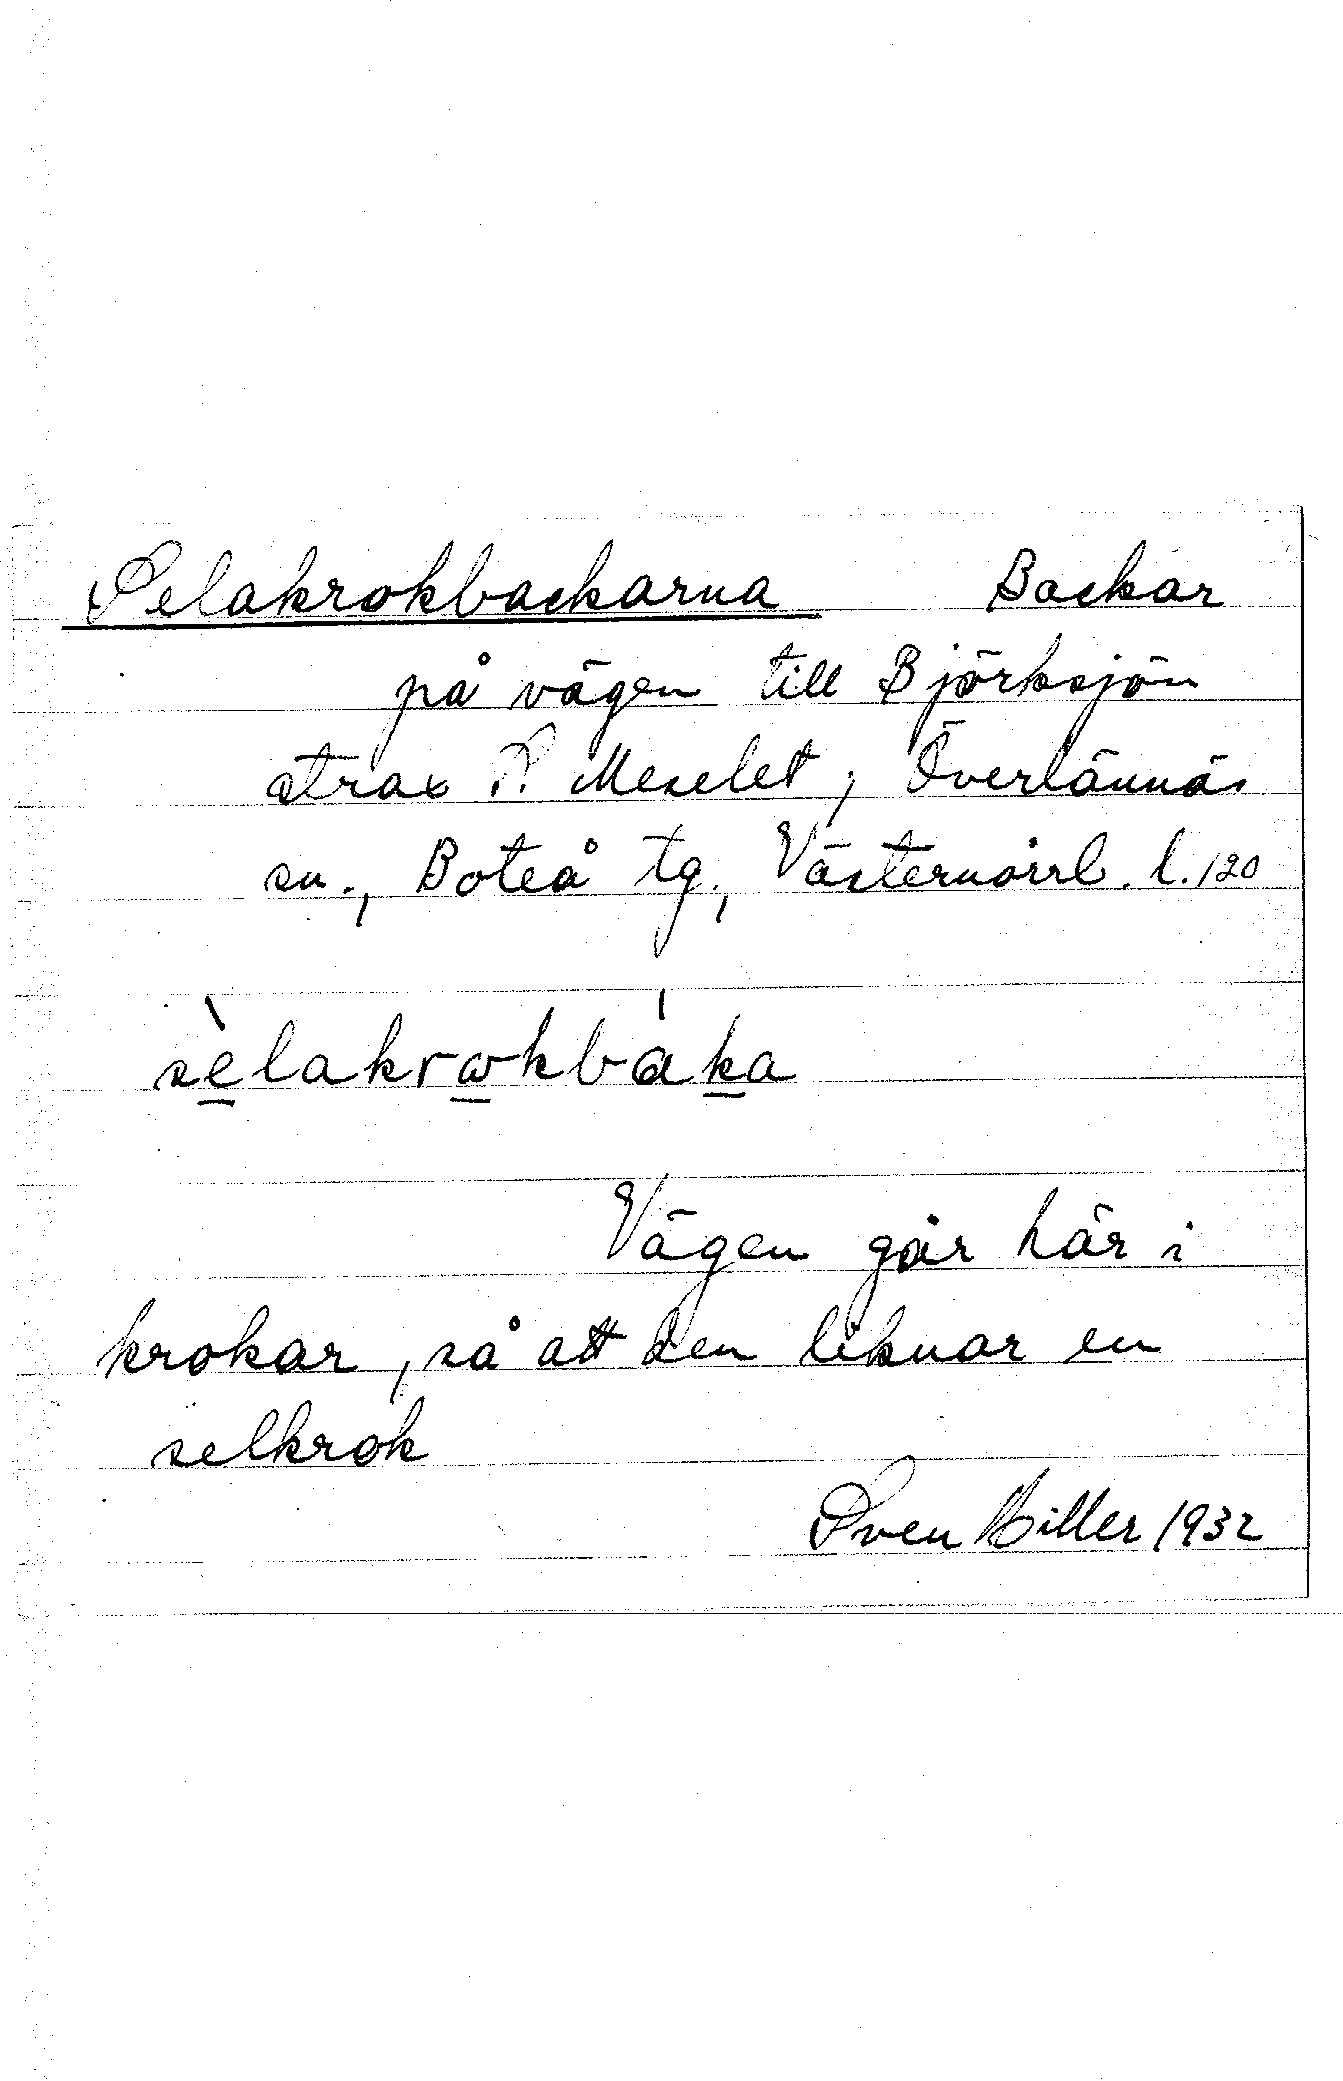 Selakrokbackarna Backar
på vägen till Björksjön
strax S. Meselet, Överlännäs
sn., Boteå tg, Västernorrl. l. 120
sèlakrωkbáka
Vägen går här i
krokar, så att den liknar en
selkrok
Sven Hiller 1932